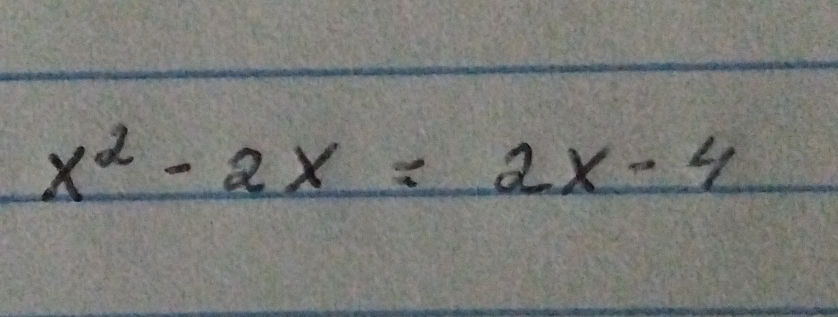 x² - 2x = 2x - 4